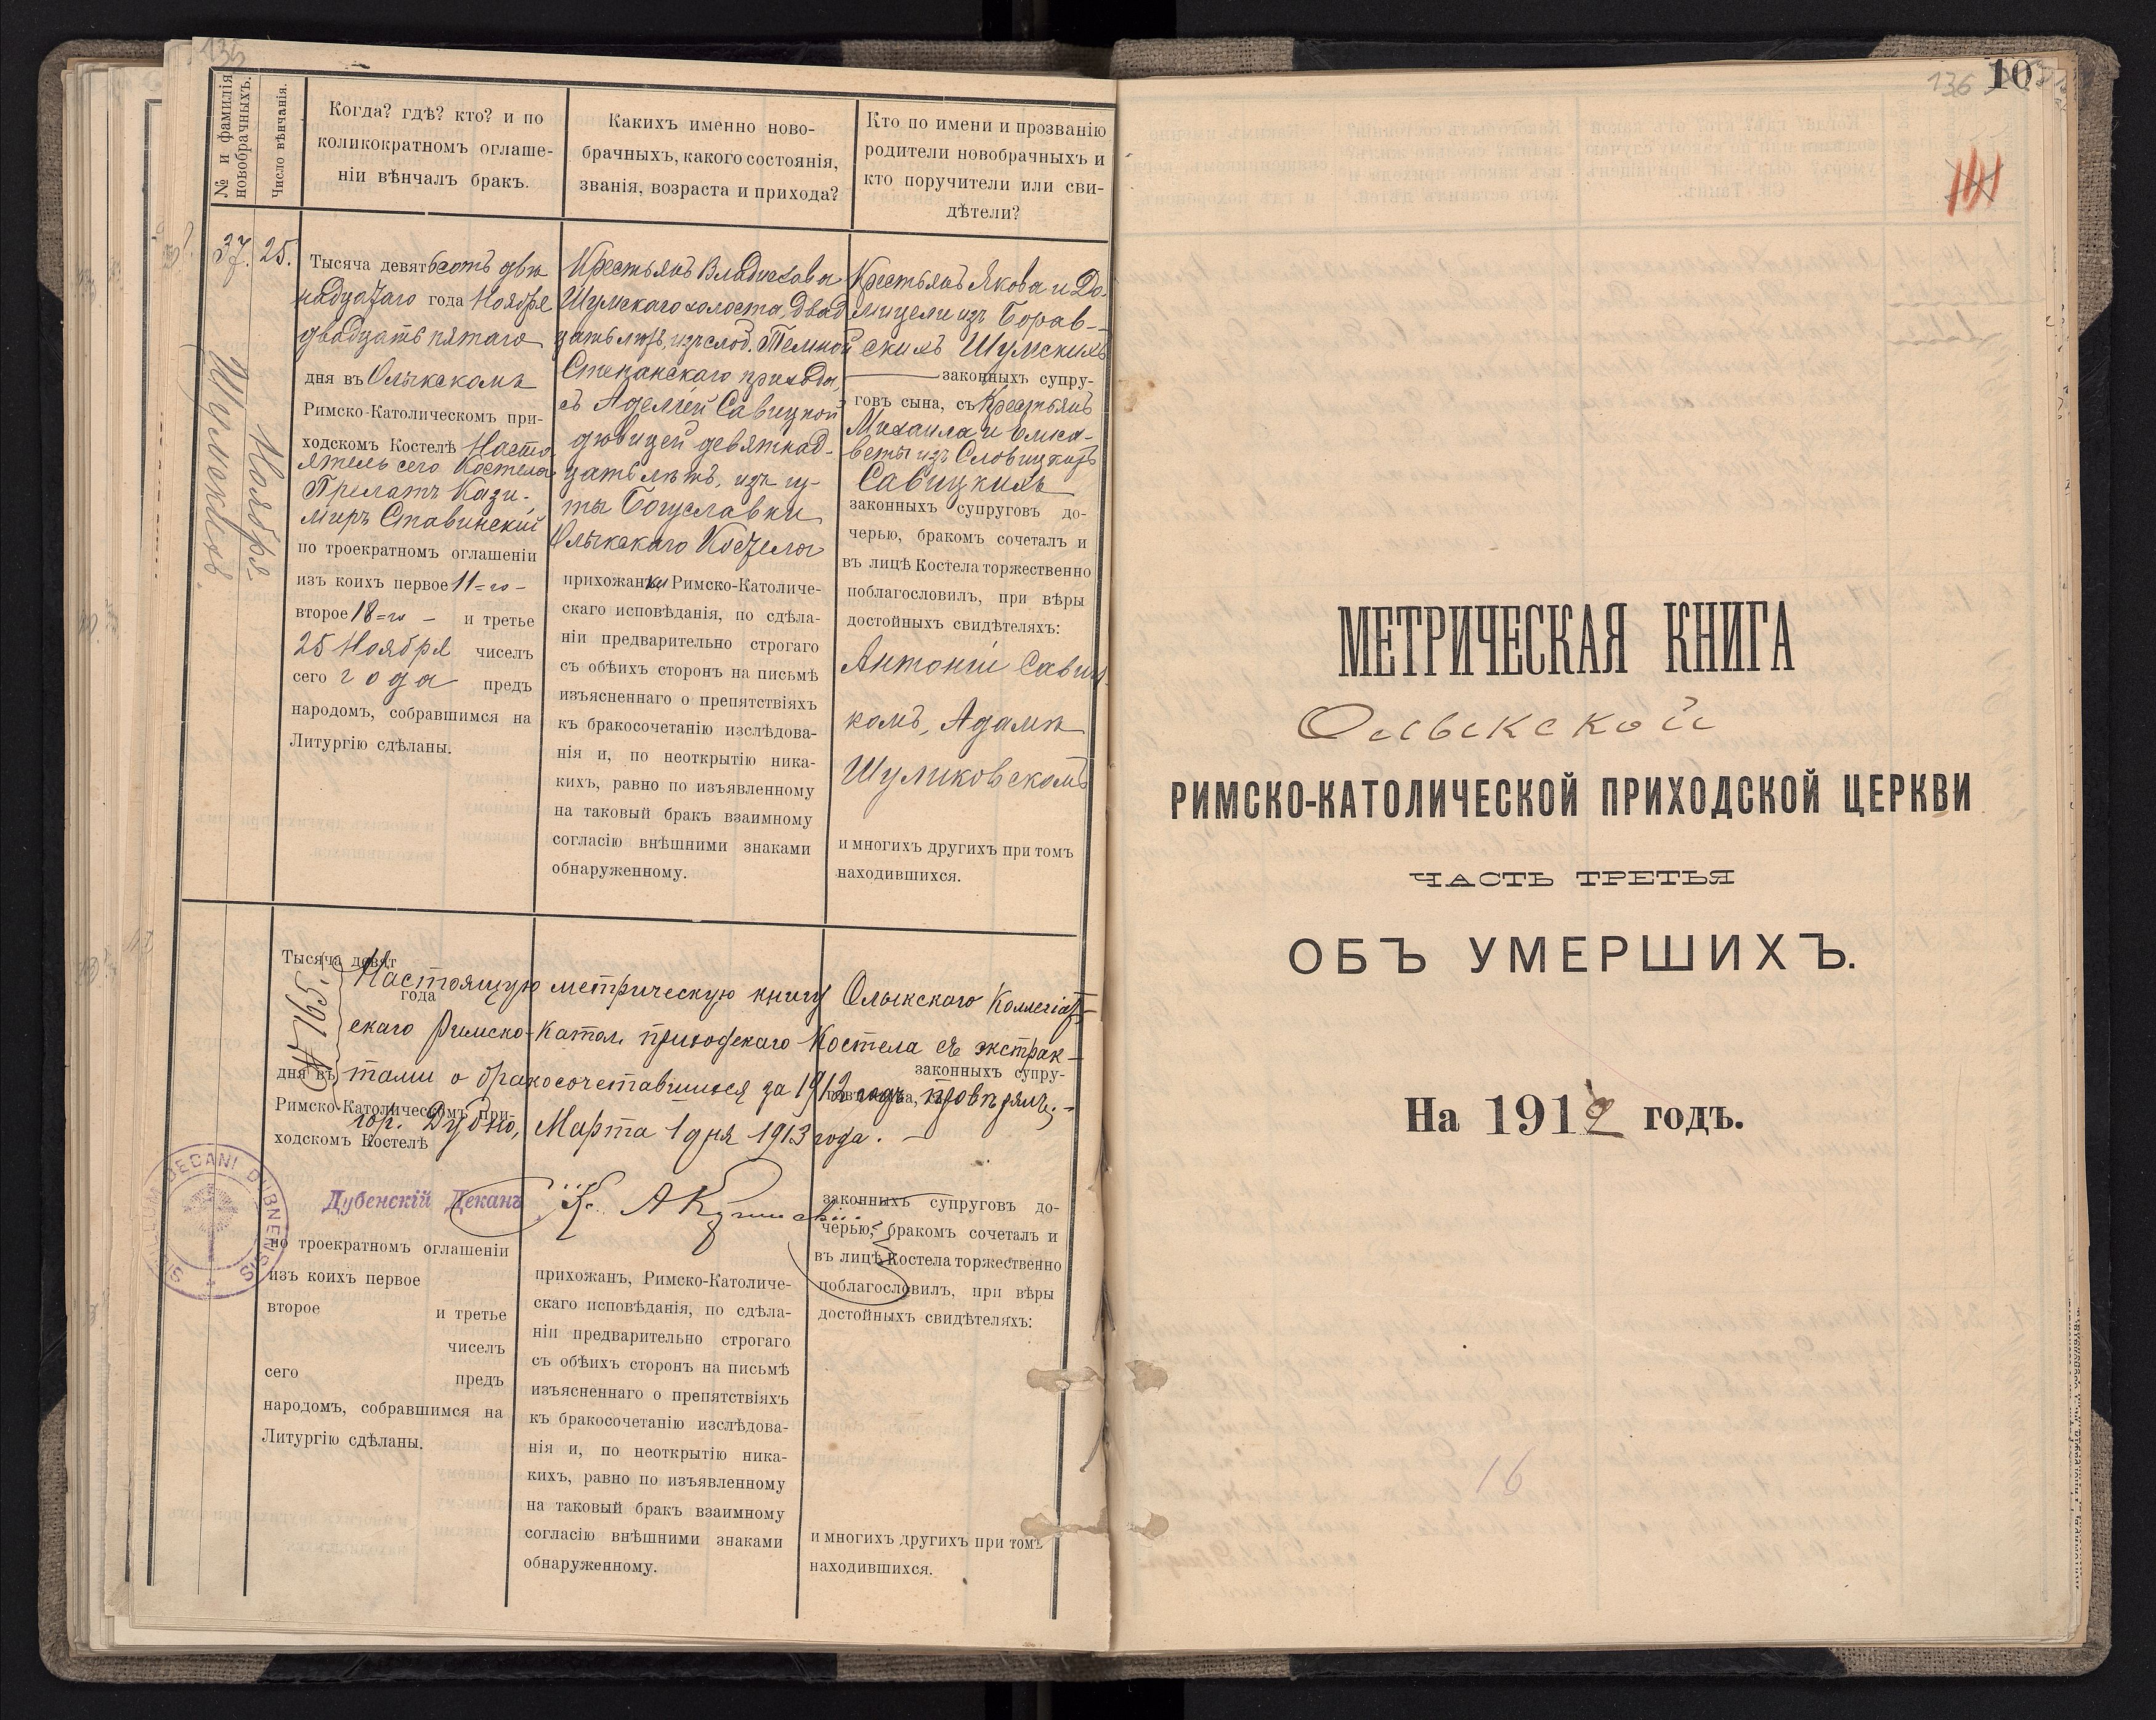 136
№ и фамилія
новобрачныхъ.
Число вѣнчанія.
Когда? гдѣ? кто? и по
коликократномъ оглаше-
ніи вѣнчалъ бракъ.
Какихъ именно ново-
брачныхъ, какого состоянія,
званія, возраста и прихода?
Кто по имени и прозванію
родители новобрачныхъ и
кто поручители или сви-
дѣтели?
37.
Шумскихъ.
25.
Ноября
Тысяча девятьсотъ двѣ
надцатаго года Ноября
двадцать пятаго
дня въ Олыкскомъ
Римско-Католическомъ при-
ходскомъ Костелѣ Насто
ятель сего Костела
Прелатъ Кази-
миръ Ставинскій
по троекратномъ оглашеніи
изъ коихъ первое 11=го -
второе 18=го - и третье
25 Ноября чиселъ
сего года предъ
народомъ, собравшимся на
Литургію сдѣланы.
Крестьянъ Владислава
Шумскаго холоста, двад
цать лѣтъ, изъ слод. Темной
Степанскаго прихода,
съ Аделіей Савицкой
дѣвицей девятнад-
цать лѣтъ, изъ
ты Богуславки
Олыкскаго Костела
прихожанки Римско-Католиче-
скаго исповѣданія, по сдѣла-
ніи предварительно строгаго
съ обѣихъ сторонъ на письмѣ
изъясненнаго о препятствіяхъ
къ бракосочетанію изслѣдова-
нія и, по неоткрытію ника-
кихъ, равно по изъявленному
на таковый бракъ взаимному
согласію внѣшними знаками
обнаруженному.
Крестьянъ Якова и До-
мицели изъ Борав-
скихъ Шумскихъ
законныхъ супру-
говъ сына, съ Крестьянъ
Михаила и Елиса-
веты изъ Словицкихъ
Савицкихъ
законныхъ супруговъ до-
черью, бракомъ сочеталъ и
въ лицѣ Костела торжественно
поблагословилъ, при вѣры
достойныхъ свидѣтеляхъ:
Антоніи Савиц
комъ, Адамѣ
Шуликовскомъ
и многихъ другихъ при томъ
находившихся.
Тысяча девят
года
дня въ
Римско-Католическомъ при-
ходскомъ Костелѣ
№ 165
Настоящую метрическую книгу Олыкскаго Коллегіат-
скаго Римско-Катол. приходскаго Костела съ экстрак-
тами о бракосочетавшихся за 1912 годъ, провѣрялъ; -
гор. Дубно, Марта 1 дня 1913 года. -
законныхъ супру-
Дубенскій Деканъ Кс. А
SIGILLUM DECANI DUBNENSIS
по троекратномъ оглашеніи
изъ коихъ первое
второе и третье
чиселъ
сего предъ
народомъ, собравшимся на
Литургію сдѣланы.
прихожанъ, Римско-Католиче-
скаго исповѣданія, по сдѣла-
ніи предварительно строгаго
съ обѣихъ сторонъ на письмѣ
изъясненнаго о препятствіяхъ
къ бракосочетанію изслѣдова-
нія и, по неоткрытію ника-
кихъ, равно по изъявленному
на таковый бракъ взаимному
согласію внѣшними знаками
обнаруженному.
законныхъ супруговъ до-
черью, бракомъ сочеталъ и
въ лицѣ Костела торжественно
поблагословилъ, при вѣры
достойныхъ свидѣтеляхъ:
и многихъ другихъ при томъ
находившихся.
136
10
МЕТРИЧЕСКАЯ КНИГА
Олыкской
РИМСКО-КАТОЛИЧЕСКОЙ ПРИХОДСКОЙ ЦЕРКВИ
ЧАСТЬ ТРЕТЬЯ
ОБЪ УМЕРШИХЪ.
На 1912 годъ.
16